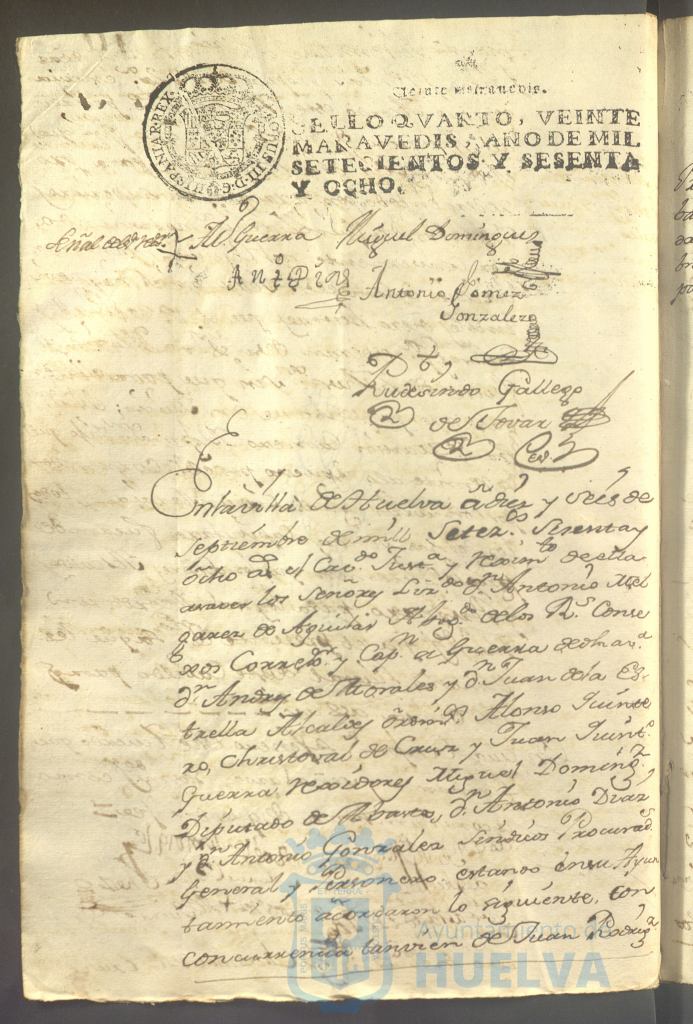 CAROLUS III D. G. HISPANIAR. REX
Veinte maravedis.
SELLO QVARTO, VEINTE
MARAVEDIS, AÑO DE MIL
SETECIENTOS Y SESENTA
Y OCHO.
Guerra Miguel Dominguez
Antonio Gomez
Gonzalez
Rudesindo Gallego
de Tovar
En la villa de Huelva a diez y seis de
Septiembre de mill Setez.os Sesenta y
ocho a.s el Cav.do Just.a y Reximto de ella
asaver los Señores Liz.do Dn Antonio Mel
garejo de Aguilar Abog.do de los R.s Conse
xos Correx.or y Cap.n a Guerra de dha
dn Andres de Morales y dn Juan de la Es
trella Alcaldes ordin.s Alonso Quinte
ro, Christoval de Cruz y Juan Quint.o
Guerra Rexidores Miguel Doming.z
Diputado de Abastos, dn Antonio Diaz
y dn Antonio Gonzalez Sindicos Procurad.s
General y Personero estando en su Ayun
tamiento acordaron lo siguiente, con
concurrencia tanvien de Juan Rodrig.z
Ayuntamiento de
HUELVA